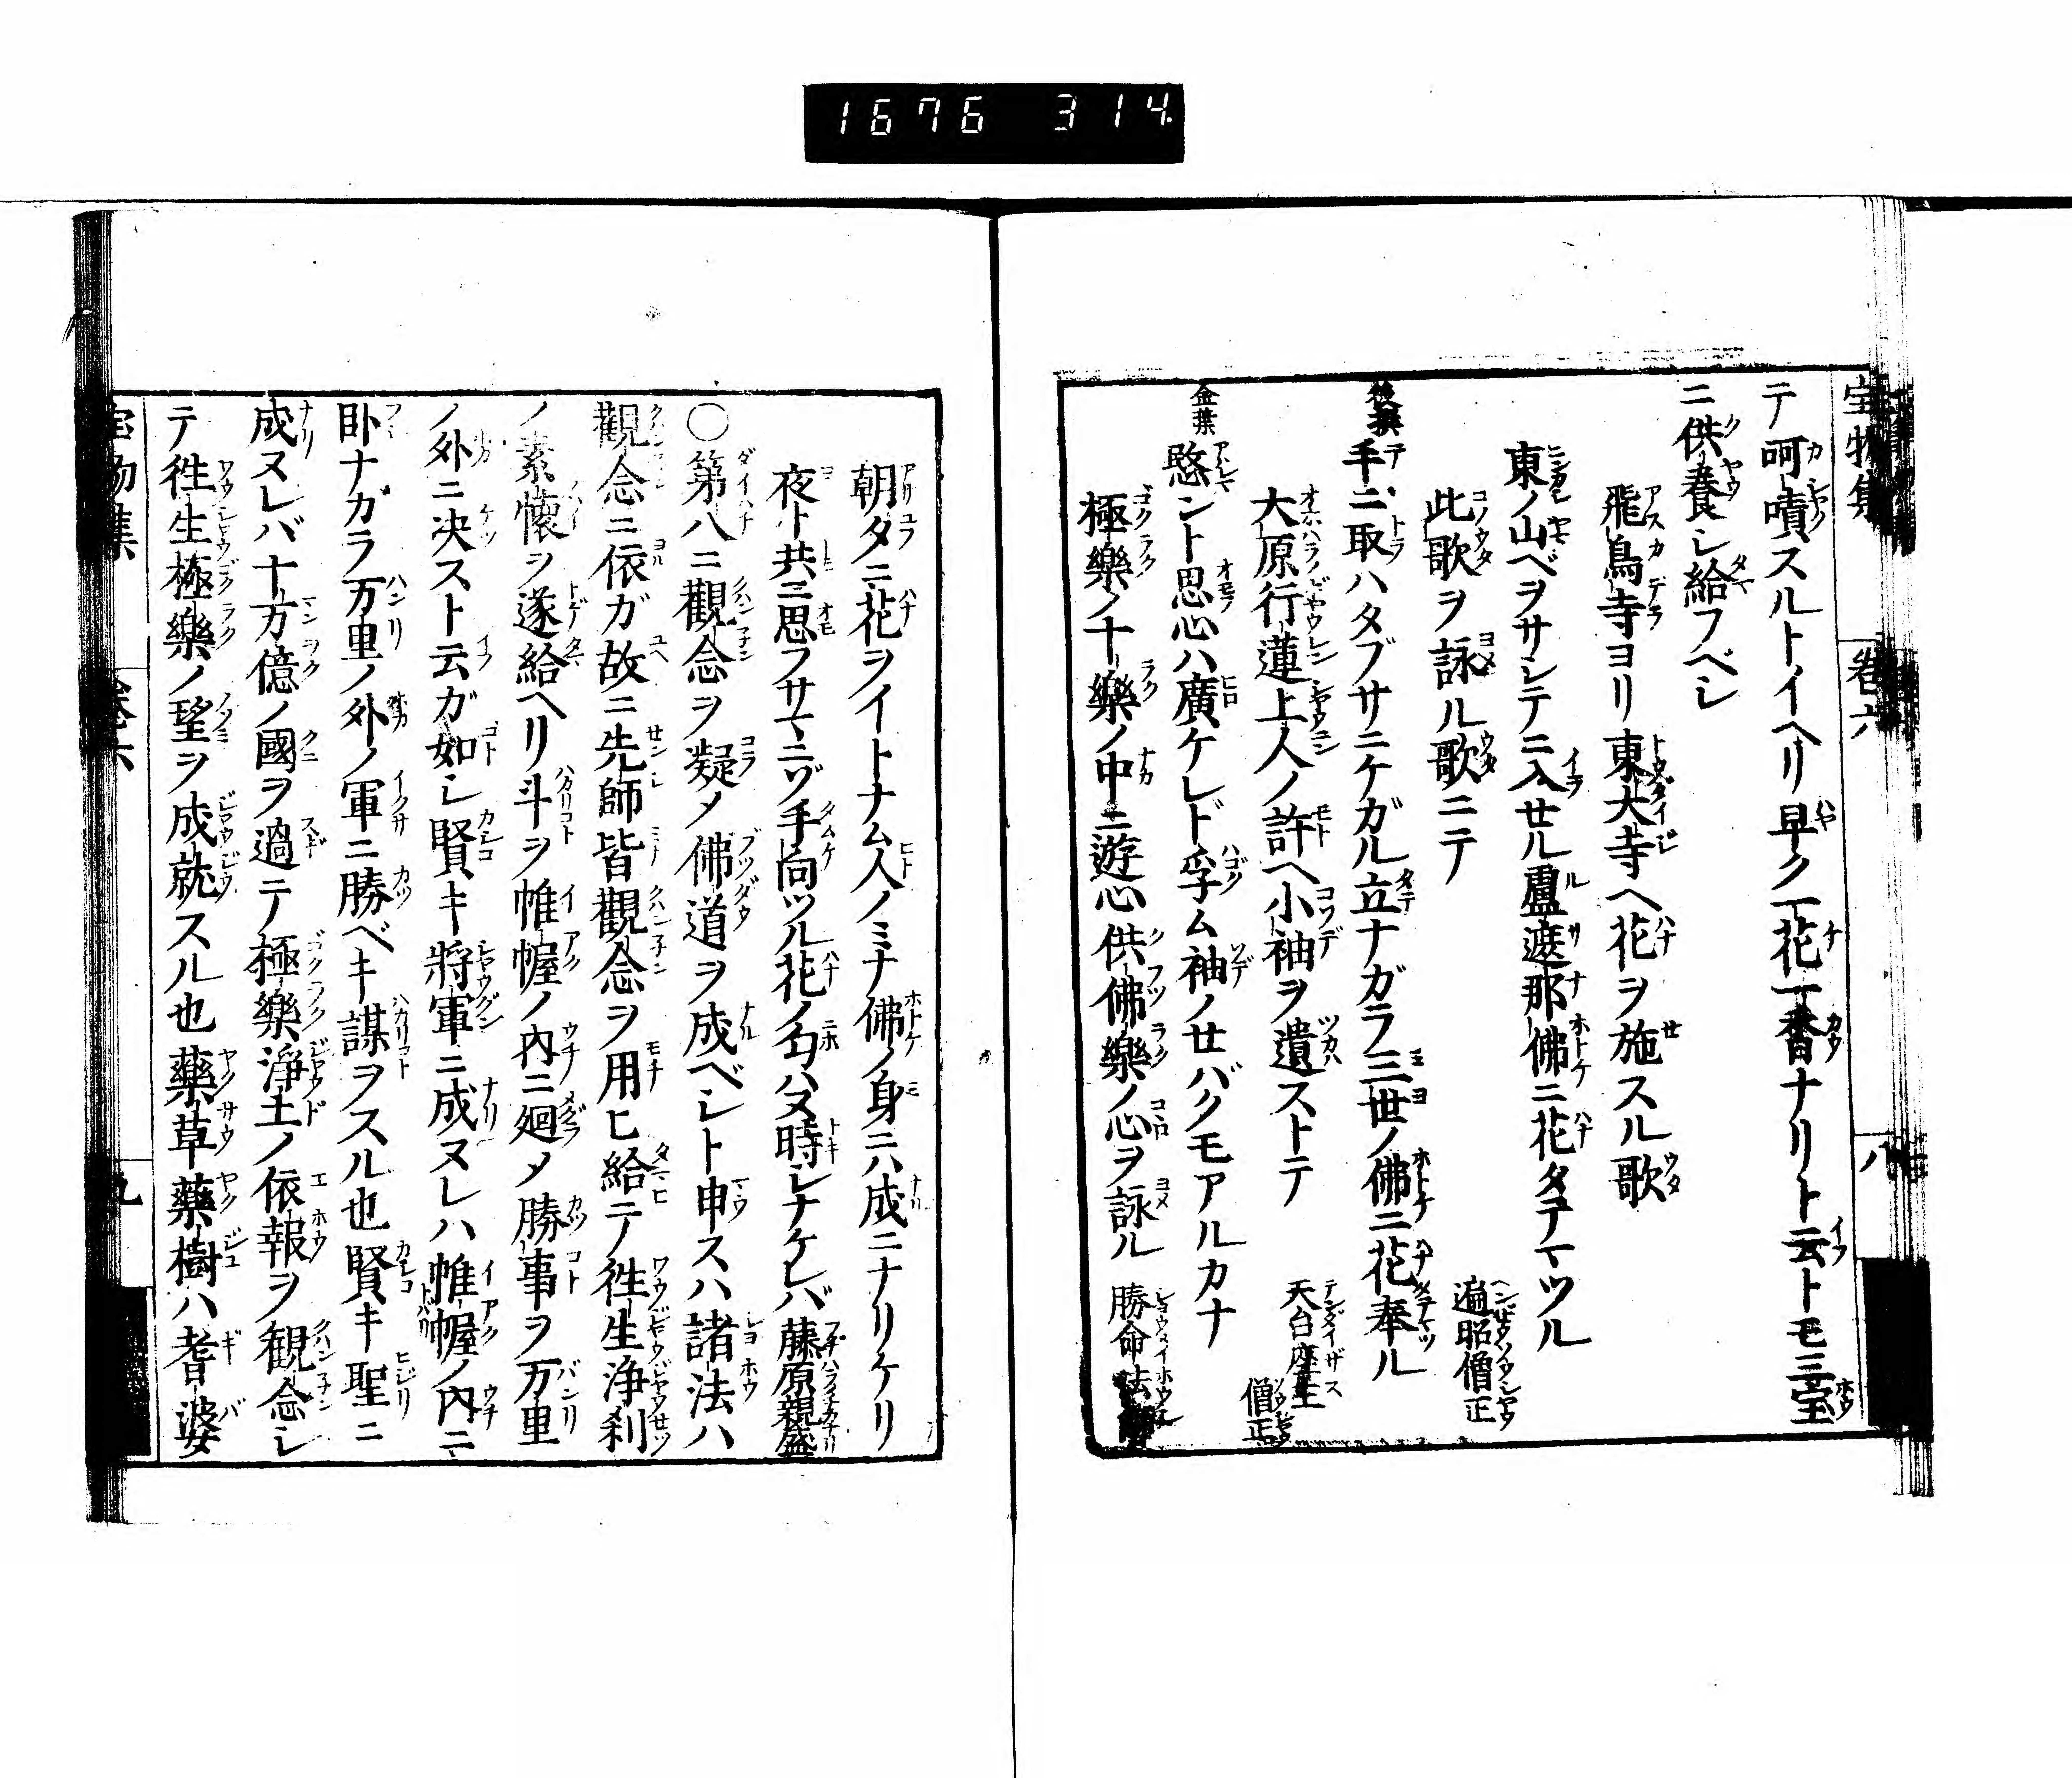 1676 314.
宝物集 卷六 八
テ呵嘖スルトイヘリ早ク一花一香ナリト云トモ三宝
ニ供養シ給フベシ
飛鳥寺ヨリ東大寺ヘ花ヲ施スル歌
東ノ山ベヲサシテニ入せル盧遮那佛ニ花タテマツル
此歌ヲ詠ル歌ニテ 遍昭僧正
後撰 手ニ取ハタブサニケガル立ナガラ三世ノ佛ニ花奉ル
大原行蓮上人ノ許ヘ小袖ヲ遺ストテ 天台座主僧正
金葉 愍ント思心ハ廣ケレド孚ム袖ノせバクモアルカナ
極樂ノ十樂ノ中ニ遊心供佛樂ノ心ヲ詠ル 勝命法
朝タニ花ヲイトナム人ノミナ佛ノ身ニハ成ニナリケリ
夜ト共ニ思フサマニゾ手向ツル花ノ匂ハヌ時シナケレバ 藤原親盛
○第八ニ觀念ヲ凝メ佛道ヲ成ベシト申スハ諸法ハ
觀念ニ依ガ故ニ先師皆觀念ヲ用ヒ給テ徃生浄刹
ノ素懷ヲ遂給ヘリ斗ヲ帷幄ノ内ニ廻メ勝事ヲ万里
ノ外ニ决スト云ガ如シ賢キ將軍ニ成ヌレハ帷幄ノ内ニ
卧ナガラ万里ノ外ノ軍ニ勝ベキ謀ヲスル也賢キ聖ニ
成ヌレバ十万億ノ國ヲ過テ極樂淨土ノ依報ヲ観念シ
テ徃生極樂ノ望ヲ成就スル也藥草藥樹ハ耆婆
宝物集 卷六 九